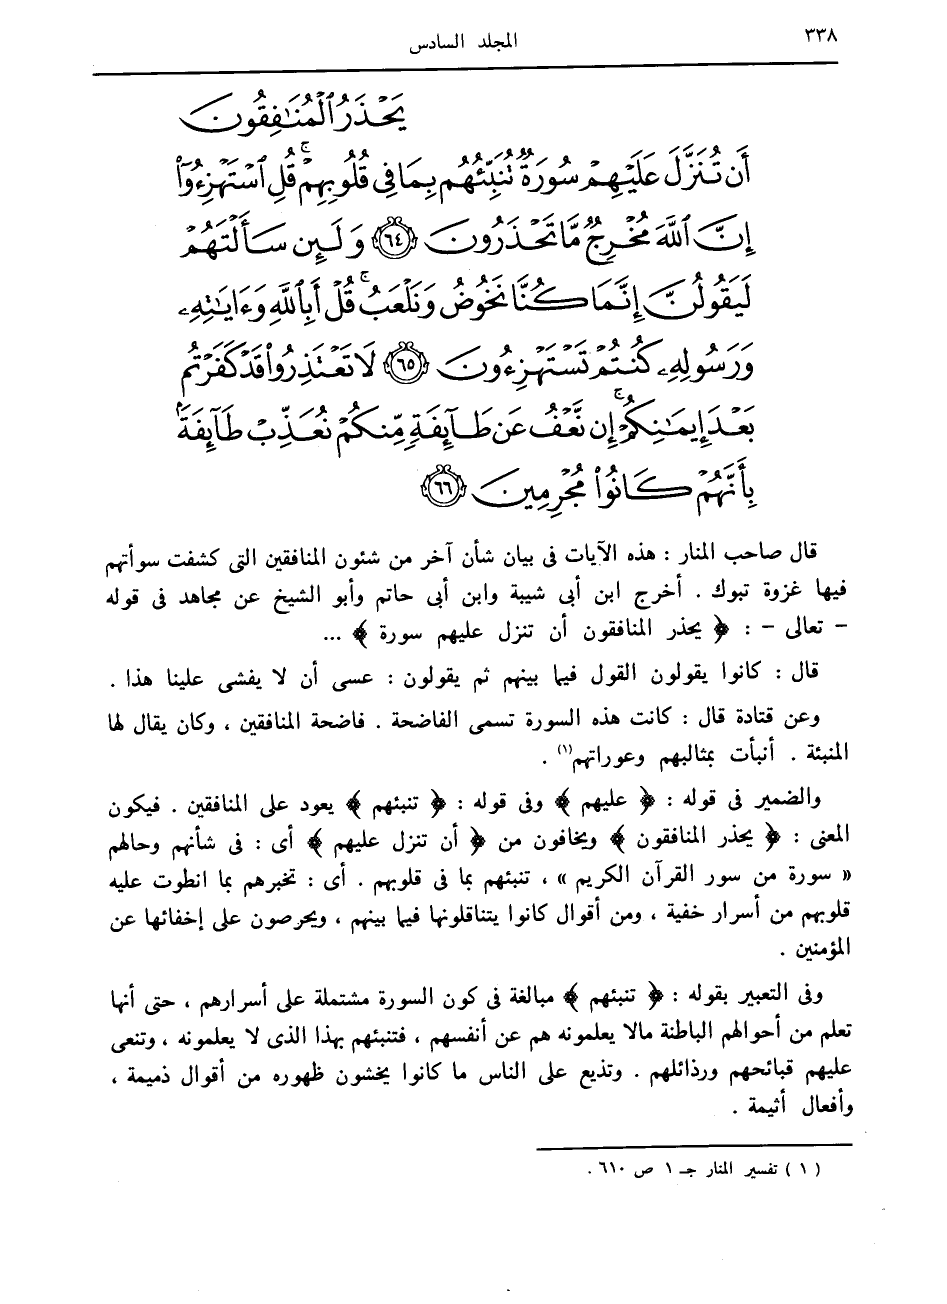 ٣٣٨
المجلد السادس
يَحْذَرُ ٱلْمُنَٰفِقُونَ
أَن تُنَزَّلَ عَلَيْهِمْ سُورَةٌ تُنَبِّئُهُم بِمَا فِى قُلُوبِهِمْ ۚ قُلِ ٱسْتَهْزِءُوٓا۟
إِنَّ ٱللَّهَ مُخْرِجٌ مَّا تَحْذَرُونَ ﴿٦٤﴾ وَلَئِن سَأَلْتَهُمْ
لَيَقُولُنَّ إِنَّمَا كُنَّا نَخُوضُ وَنَلْعَبُ ۚ قُلْ أَبِٱللَّهِ وَءَايَٰتِهِۦ
وَرَسُولِهِۦ كُنتُمْ تَسْتَهْزِءُونَ ﴿٦٥﴾ لَا تَعْتَذِرُوا۟ قَدْ كَفَرْتُم
بَعْدَ إِيمَٰنِكُمْ ۚ إِن نَّعْفُ عَن طَآئِفَةٍ مِّنكُمْ نُعَذِّبْ طَآئِفَةًۢ
بِأَنَّهُمْ كَانُوا۟ مُجْرِمِينَ ﴿٦٦﴾
قال صاحب المنار : هذه الآيات فى بيان شأن آخر من شئون المنافقين التى كشفت سوأتهم
فيها غزوة تبوك . أخرج ابن أبى شيبة وابن أبى حاتم وأبو الشيخ عن مجاهد فى قوله
- تعالى - : ﴿ يحذر المنافقون أن تنزل عليهم سورة ﴾ ...
قال : كانوا يقولون القول فيما بينهم ثم يقولون : عسى أن لا يفشى علينا هذا .
وعن قتادة قال : كانت هذه السورة تسمى الفاضحة . فاضحة المنافقين ، وكان يقال لها
المنبئة . أنبأت بمثالبهم وعوراتهم(١) .
والضمير فى قوله : ﴿ عليهم ﴾ وفى قوله : ﴿ تنبئهم ﴾ يعود على المنافقين . فيكون
المعنى : ﴿ يحذر المنافقون ﴾ ويخافون من ﴿ أن تنزل عليهم ﴾ أى : فى شأنهم وحالهم
« سورة من سور القرآن الكريم » ، تنبئهم بما فى قلوبهم . أى : تخبرهم بما انطوت عليه
قلوبهم من أسرار خفية ، ومن أقوال كانوا يتناقلونها فيما بينهم ، ويحرصون على إخفائها عن
المؤمنين .
وفى التعبير بقوله : ﴿ تنبئهم ﴾ مبالغة فى كون السورة مشتملة على أسرارهم ، حتى أنها
تعلم من أحوالهم الباطنة مالا يعلمونه هم عن أنفسهم ، فتنبئهم بهذا الذى لا يعلمونه ، وتنعى
عليهم قبائحهم ورذائلهم . وتذيع على الناس ما كانوا يخشون ظهوره من أقوال ذميمة ،
وأفعال أثيمة .
( ١ ) تفسير المنار جـ ١ ص ٦١٠ .